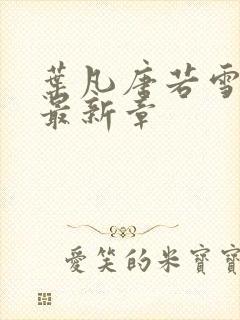 葉凡唐若雪
最新章
愛笑的米寶寶